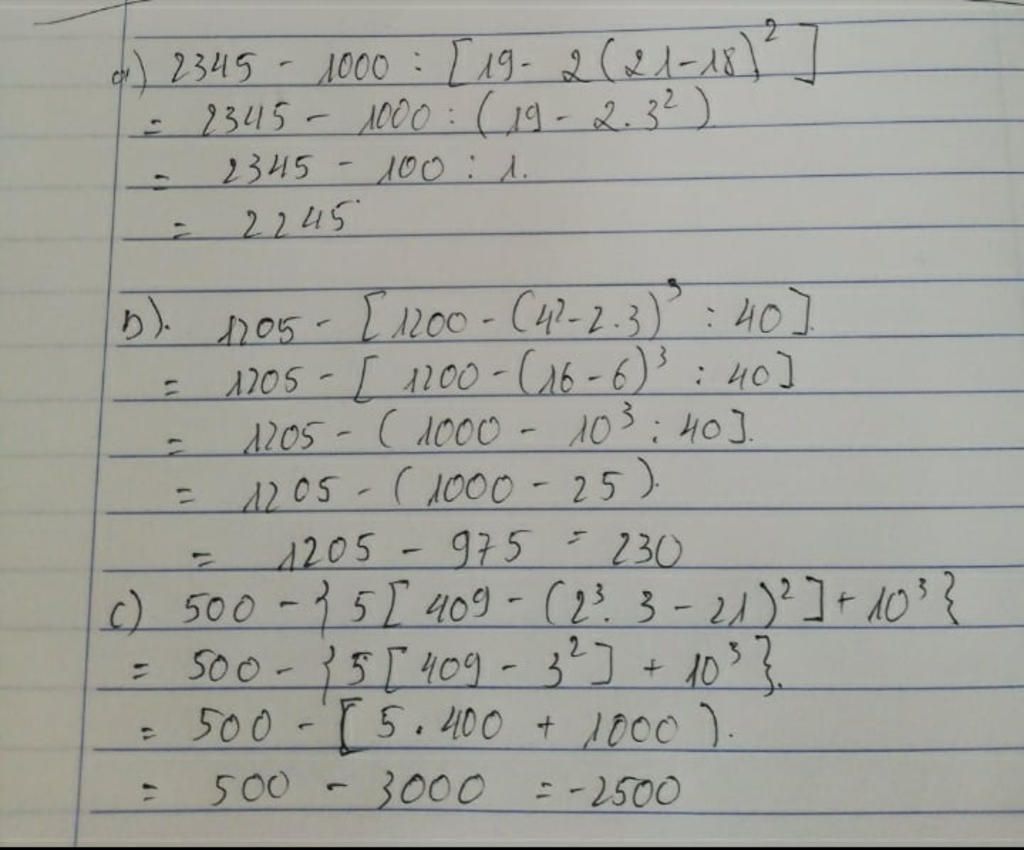 a) 2345 - 1000 : [19 - 2(21-18)²]
= 2345 - 1000 : (19 - 2.3²)
= 2345 - 100 : 1.
= 2245
b). 1205 - [1200 - (4²-2.3)³ : 40].
= 1205 - [1200 - (16-6)³ : 40]
= 1205 - (1000 - 10³ : 40].
= 1205 - (1000 - 25).
= 1205 - 975 = 230
c) 500 - {5[409 - (2³.3 - 21)²] + 10³}
= 500 - {5[409 - 3²] + 10³}.
= 500 - [5.400 + 1000).
= 500 - 3000 = -2500